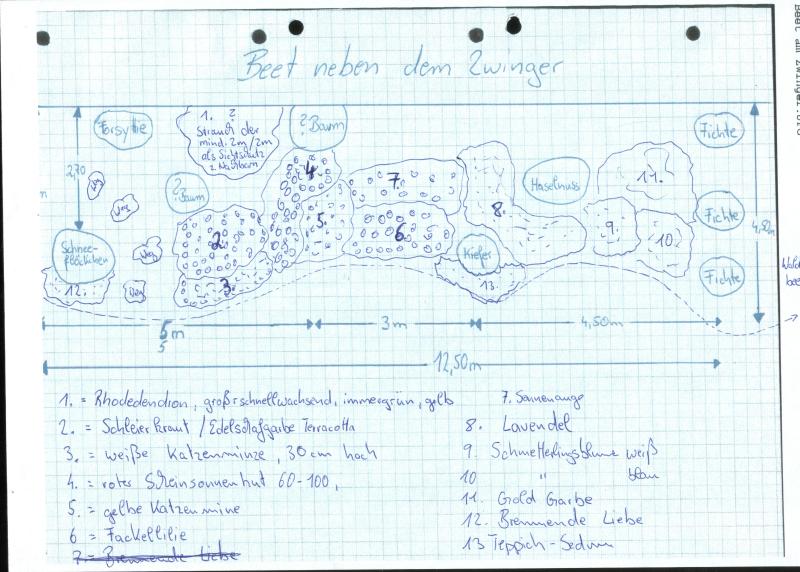 Beet neben dem Zwinger
Forsythie
1. ?
Strauch der
mind. 2m/2m
als Sichtschutz
z. Nachbarn
? Baum
Fichte
2,70
Weg
Weg
? Baum
4
7.
Haselnuss
11.
8.
5.
6.
9.
10
Fichte
4,80m
Schnee-
flöckchen
Weg
2.
Kiefer
Fichte
12.
Weg
3.
13.
5m
5
3m
4,50m
12,50m
1. = Rhodedendron, groß + schnellwachsend, immergrün, gelb
2. = Schleierkraut / Edelschafgarbe Terracotta
3. = weiße Katzenminze, 30 cm hoch
4. = rotes Scheinsonnenhut 60-100,
5. = gelbe Katzenmine
6 = Fackellilie
7 = Brennende Liebe
7. Sonnenauge
8. Lavendel
9. Schmetterlingsblume weiß
10 " blau
11. Gold Garbe
12. Brennende Liebe
13 Teppich-Sedum